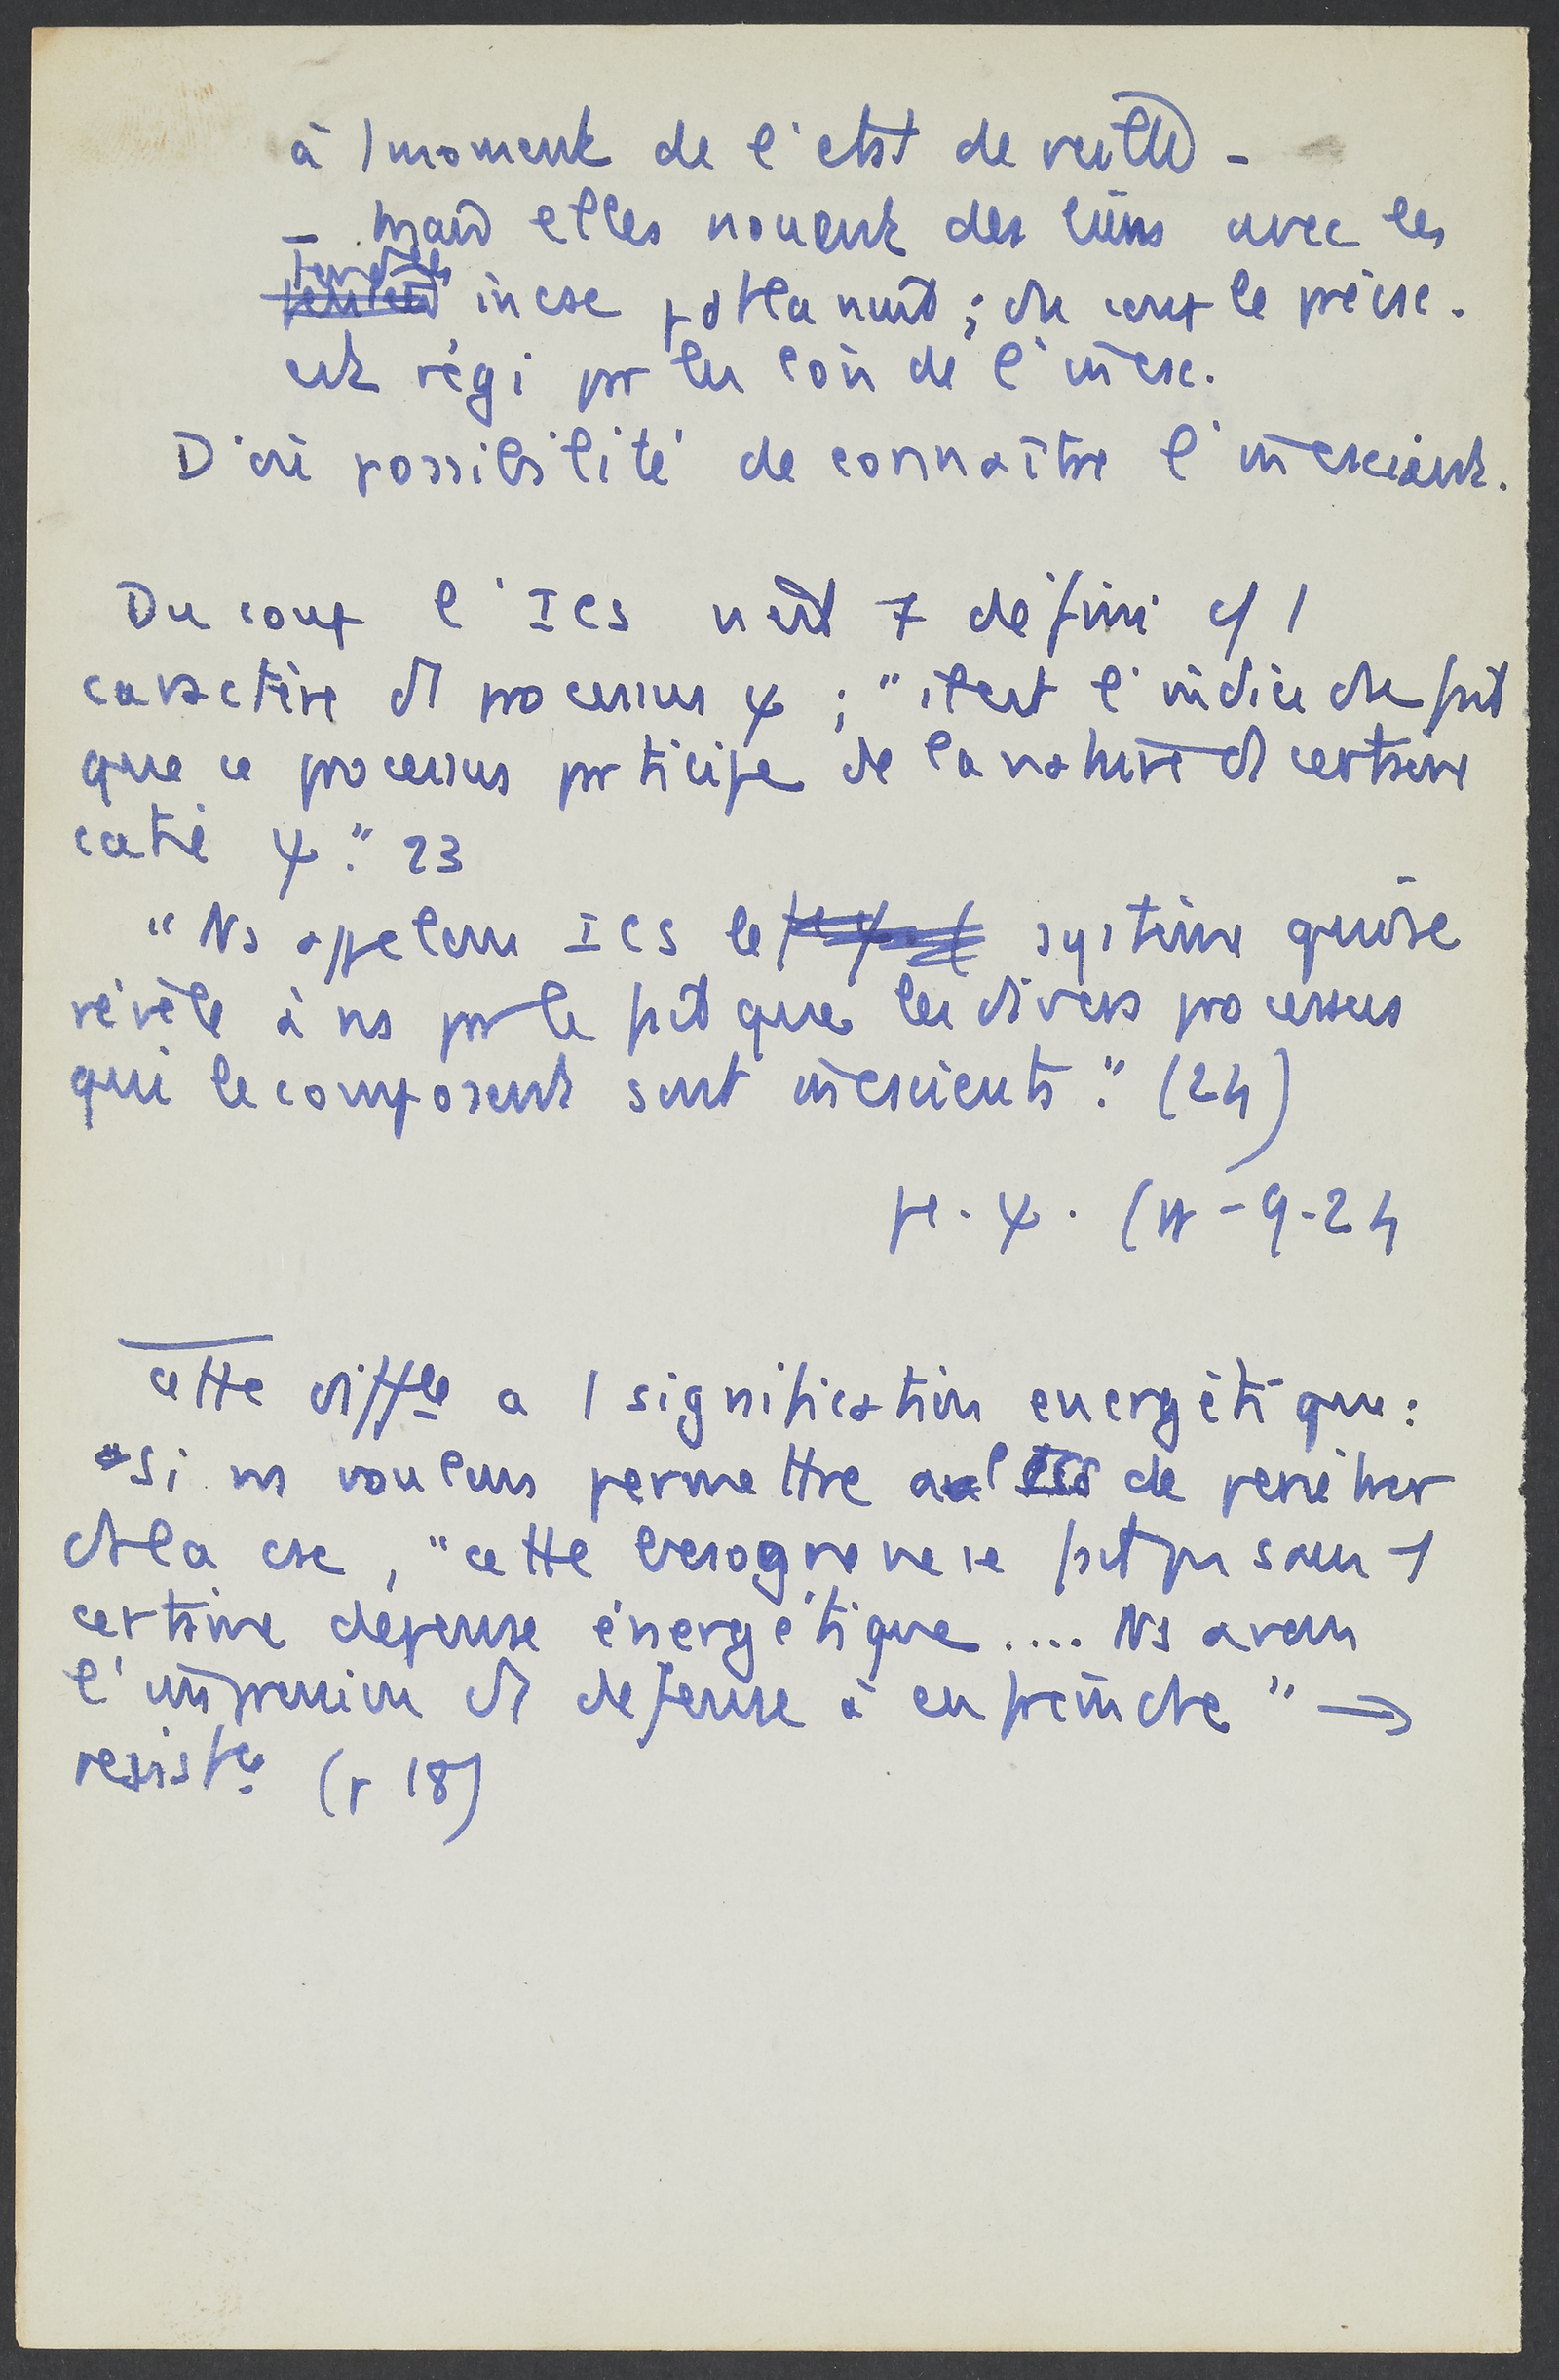 à 1 moment de l'etat de veille -
- mais elles nouent des liens avec les
tendces incse pdt la nuit ; du coup le précsc.
est régi par les lois de l'incsc.
D'où possibilité de connaître l'inconscient.
Du coup l'ICS n'est + défini c/ 1
caractère ds processus ψ ; "il est l'indice du fait
que ce processus participe de la nature d certaine
catié ψ." 23
"Ns appelons ICS le système qui se
révèle à ns par le fait que les divers processus
qui le composent sont inconscients." (24)
- 9-24
Cette difféce a 1 signification energétique :
"Si ns voulons permettre a l'ICS de penétrer
ds la csc, "cette besogne ne se fait pas sans 1
certaine dépense énergétique .... Ns avons
l'impression d défense à enfreindre" →
resistce (p 18)